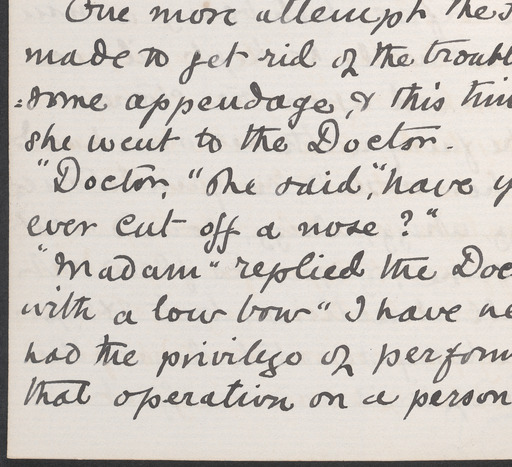 One more attempt the
made to get rid of the troubl
=some appendage, & this tim
she went to the Doctor.
"Doctor, "she said, "have y
ever cut off a nose?"
"Madam" replied the Doc
with a low bow "I have ne
had the privilege of perform
that operation on a person